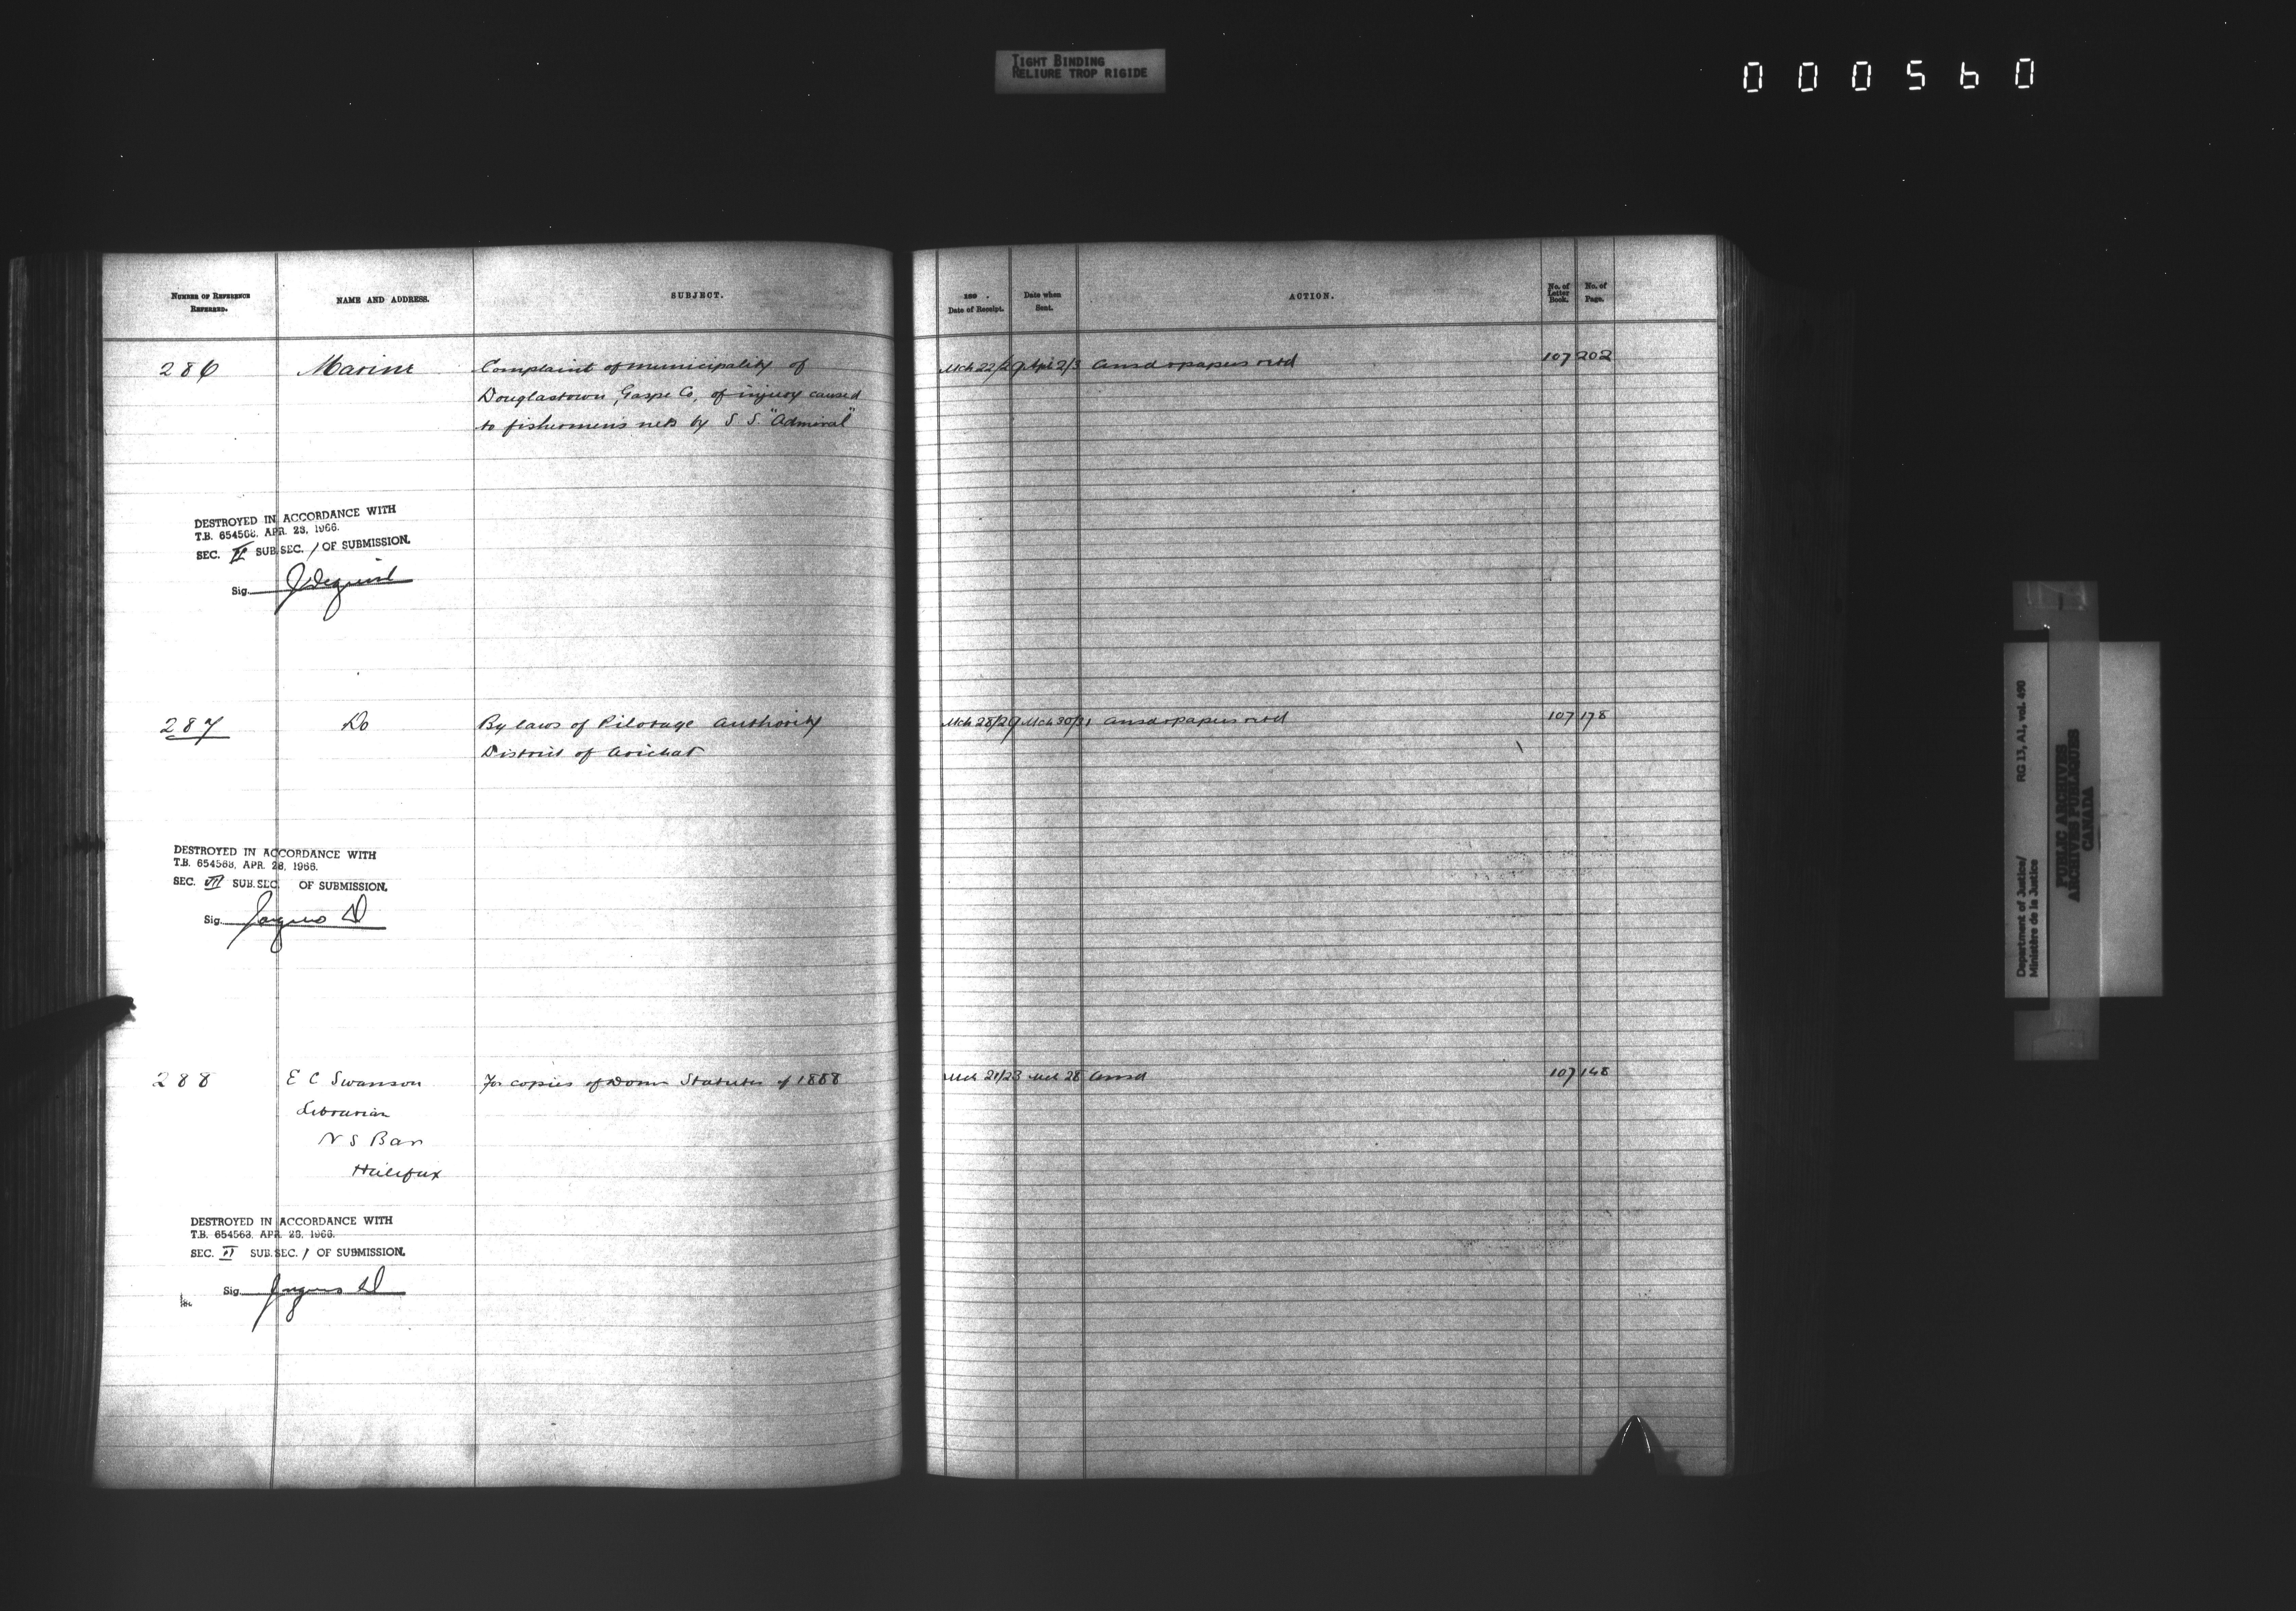 TIGHT BINDING
RELIURE TROP RIGIDE
000560
NUMBER OF REFERENCE REFERRED.
NAME AND ADDRESS.
SUBJECT.
188 .
Date of Receipt.
Date when Sent.
ACTION.
No. of Letter Book.
No. of Page.
286 Marine Complaint of municipality of Mch 22/29 Apl 2/3 Ansd & papers retd 107 202
Douglastown, Gaspe Co, of injury caused
to fishermen's nets by S S. "Admiral"
DESTROYED IN ACCORDANCE WITH
T.B. 654568, APR. 28, 1966.
SEC. VI SUB.SEC. 1 OF SUBMISSION.
Sig.
287 Do By laws of Pilotage Authority Mch 28/29 Mch 30/31 Ansd & papers retd 107 178
District of Arichat
DESTROYED IN ACCORDANCE WITH
T.B. 654568, APR. 28, 1966.
SEC. VII SUB.SEC. OF SUBMISSION.
Sig.
288 E C Swanson For copies of Domn Statutes of 1888 Mch 21/23 Mch 28 Ansd 107 148
Librarian
N S Bar
Halifax
DESTROYED IN ACCORDANCE WITH
T.B. 654568, APR. 28, 1966.
SEC. VI SUB.SEC. 1 OF SUBMISSION.
Sig.
Department of Justice/ RG 13, A1, vol. 490
Ministère de la Justice
PUBLIC ARCHIVES
ARCHIVES PUBLIQUES
CANADA